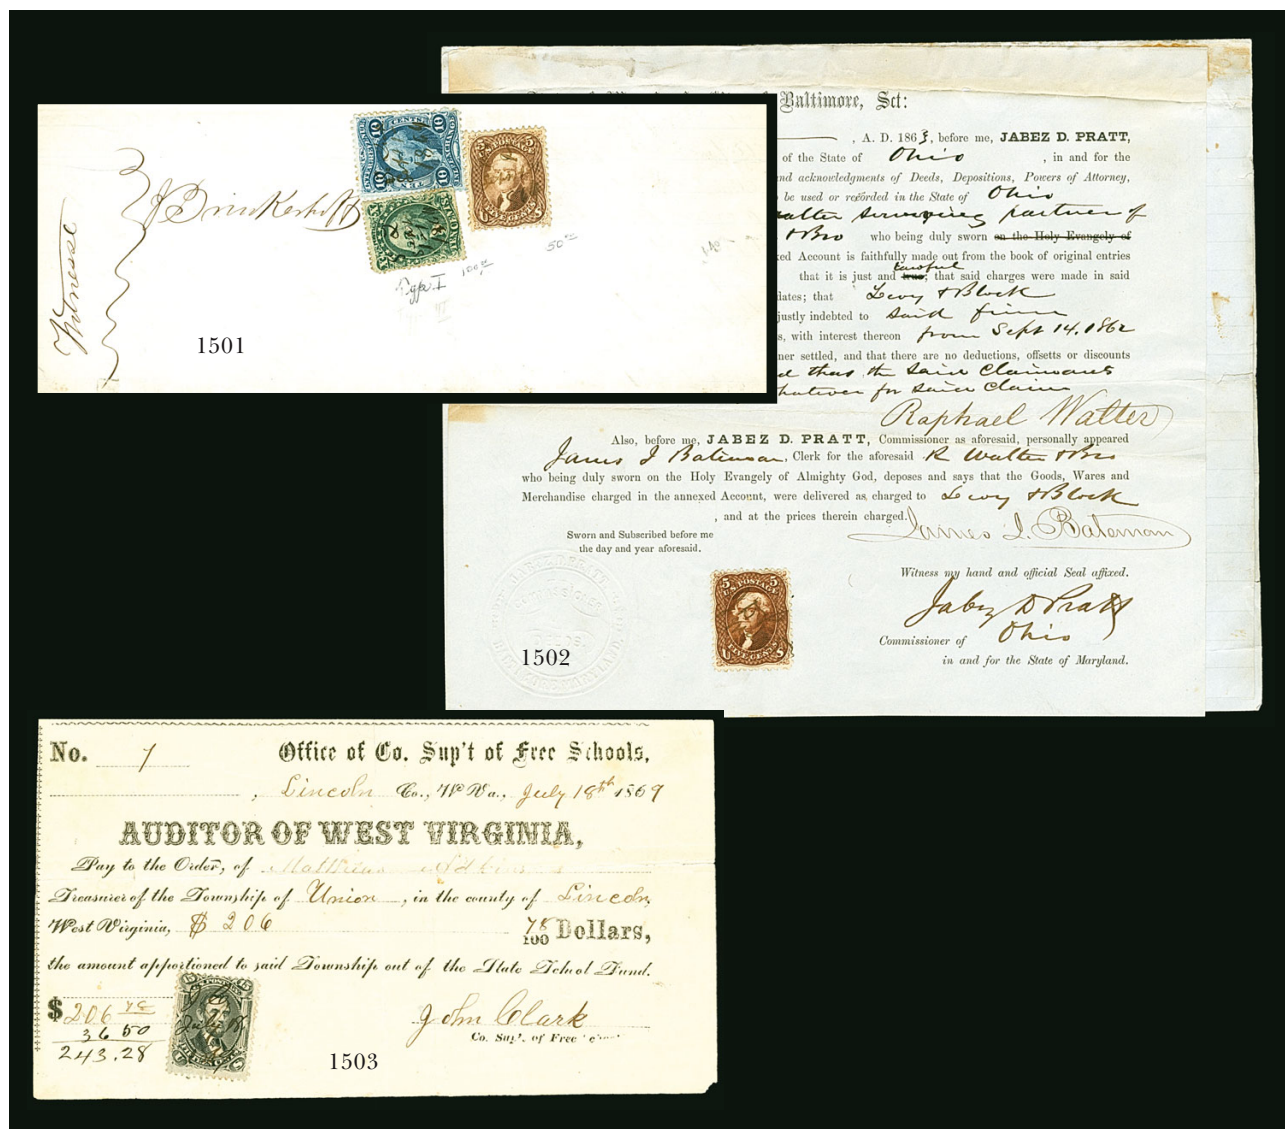 Witnesse
J Brinkerhoff
10 CENTS 10
10 10
5 5
FIVE CENTS
50 00
100 00
Type I
1501
Baltimore, Sct:
, A. D. 1863, before me, JABEZ D. PRATT,
of the State of Ohio , in and for the
nd acknowledgments of Deeds, Depositions, Powers of Attorney,
be used or recorded in the State of Ohio
Walter surviving partner of
& Bro who being duly sworn on the Holy Evangely of
ed Account is faithfully made out from the book of original entries
lawful
that it is just and true; that said charges were made in said
dates; that Levy & Block
justly indebted to said firm
s, with interest thereon from Sept 14, 1862
ner settled, and that there are no deductions, offsetts or discounts
d that the said Claimants
whatever for said Claim
Raphael Walter
Also, before me, JABEZ D. PRATT, Commissioner as aforesaid, personally appeared
James J Bateman, Clerk for the aforesaid R Walter & Bro
who being duly sworn on the Holy Evangely of Almighty God, deposes and says that the Goods, Wares and
Merchandise charged in the annexed Account, were delivered as charged to Levy & Block
, and at the prices therein charged.
James J. Bateman
Sworn and Subscribed before me
the day and year aforesaid.
Witness my hand and official Seal affixed.
Jabez D Pratt
Commissioner of Ohio
in and for the State of Maryland.
5 U.S. POSTAGE 5
FIVE CENTS
1502
No. 7 Office of Co. Sup't of Free Schools,
, Lincoln Co., W Va., July 18th 1869
AUDITOR OF WEST VIRGINIA,
Pay to the Order, of Mathew Adkins
Treasurer of the Township of Union , in the county of Lincoln,
West Virginia, $ 206 78/100 Dollars,
the amount apportioned to said Township out of the State School Fund.
$ 206 78
36 50
243,28
John Clark
Co. Sup't. of Free
1503